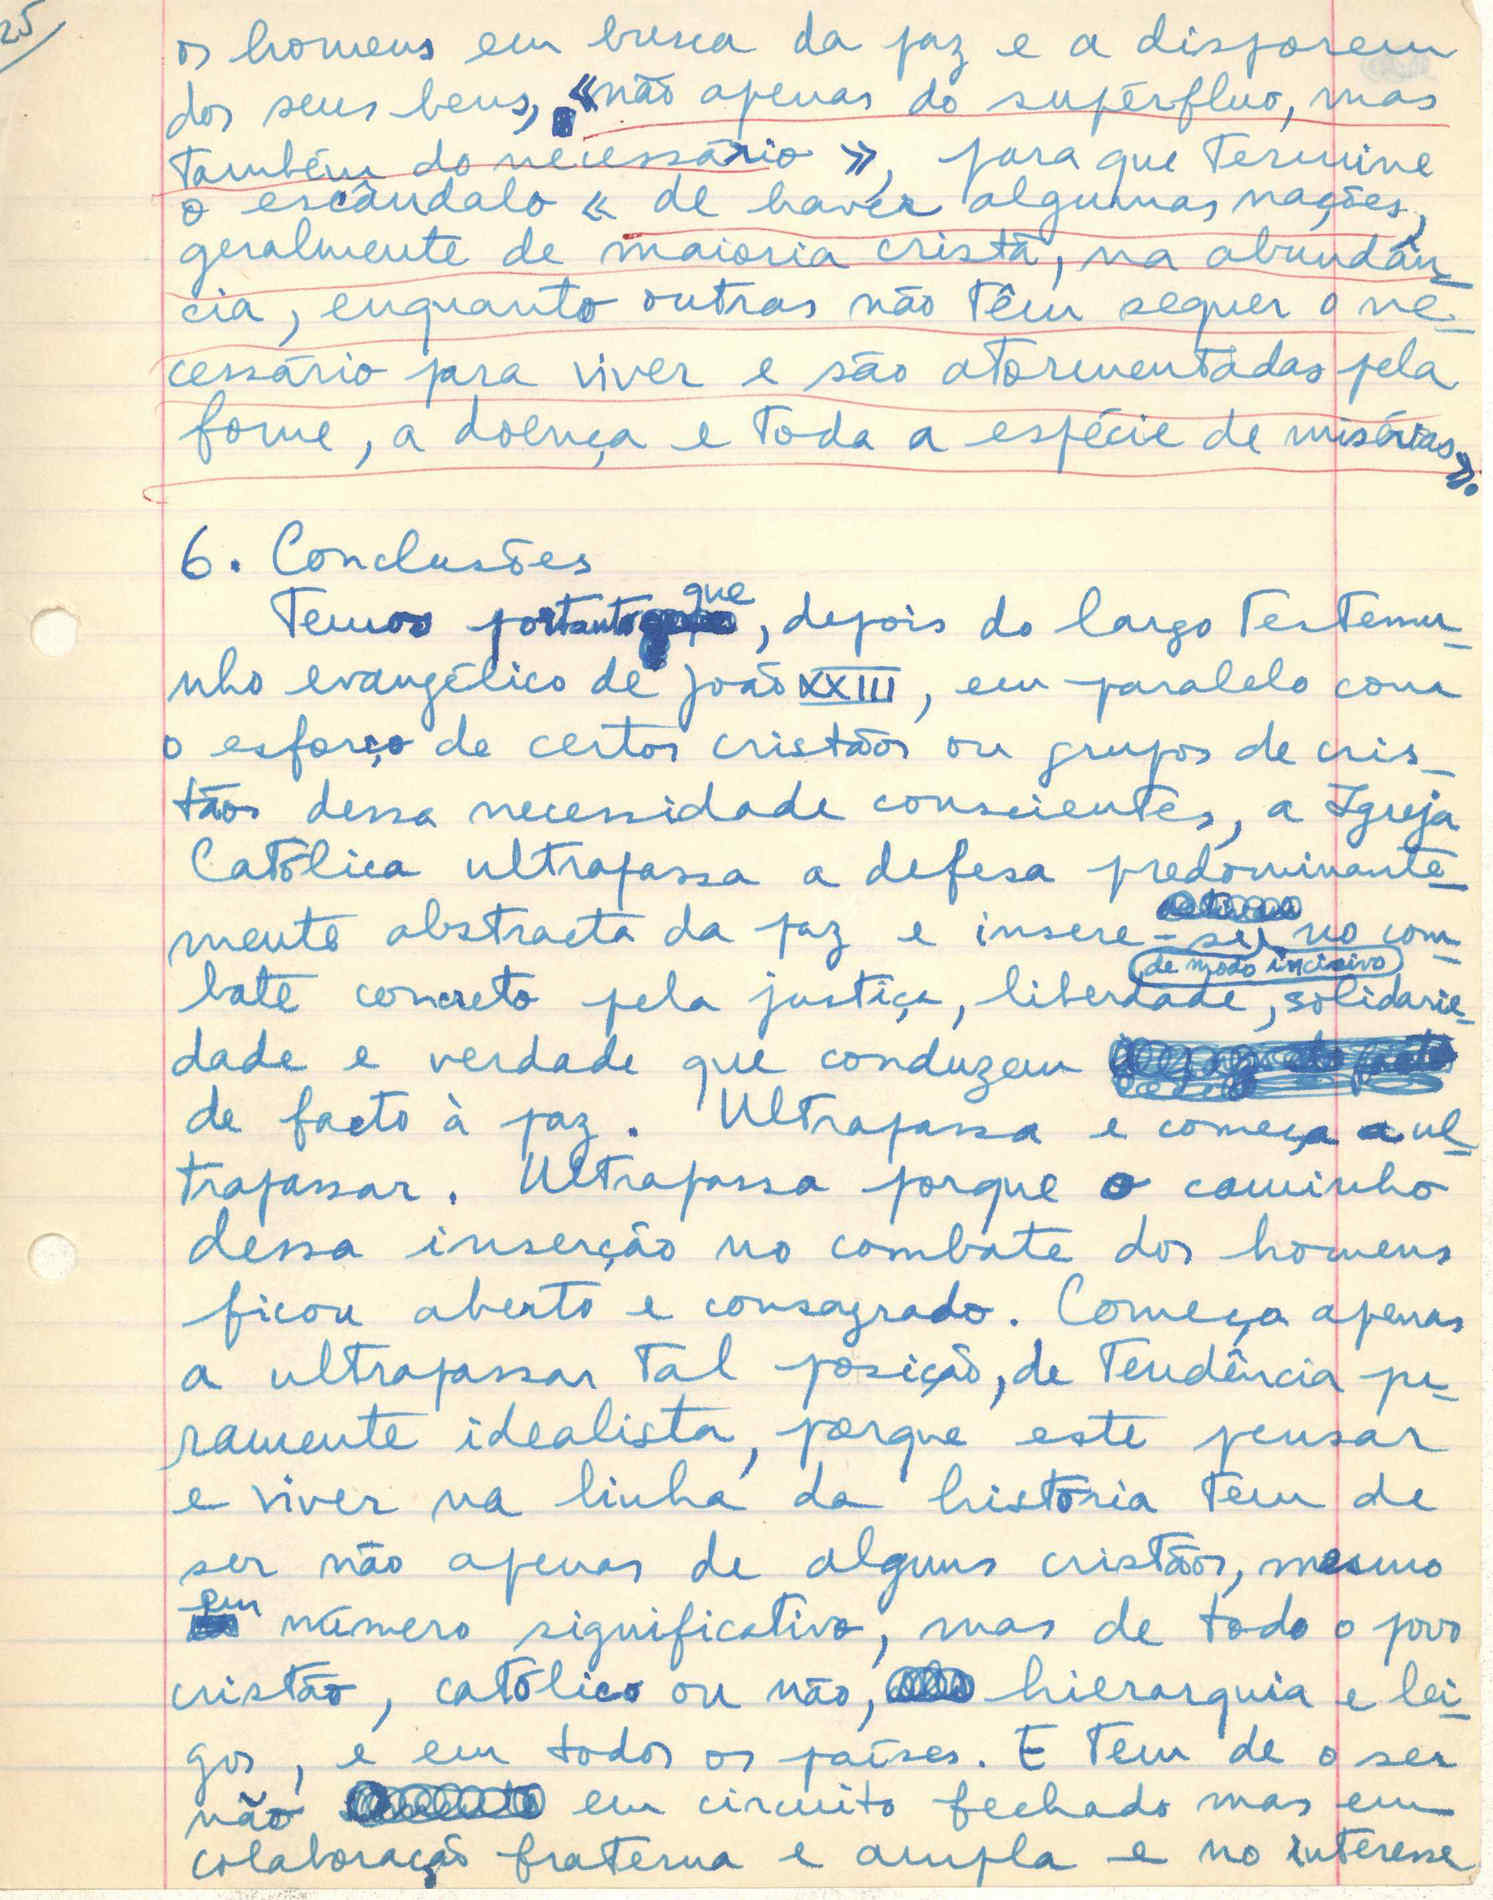 25
os homens em busca da paz e a disporem
dos seus bens, «não apenas do supérfluo, mas
também do necessário», para que termine
o escândalo « de haver algumas nações,
geralmente de maioria cristã, na abundân-
cia, enquanto outras não têm sequer o ne-
cessário para viver e são atormentadas pela
fome, a doença e toda a espécie de misérias».
6. Conclusões
Temos portanto que, depois do largo testemu-
nho evangélico de João XXIII, em paralelo com
o esforço de certos cristãos ou grupos de cris-
tãos dessa necessidade conscientes, a Igreja
Católica ultrapassa a defesa predominante-
mente abstracta da paz e insere-se no com-
de modo incisivo
bate concreto pela justiça, liberdade, solidarie-
dade e verdade que conduzem
de facto à paz. Ultrapassa e começa a ul-
trapassar. Ultrapassa porque o caminho
dessa inserção no combate dos homens
ficou aberto e consagrado. Começa apenas
a ultrapassar tal posição, de tendência pu-
ramente idealista, porque este pensar
e viver na linha da história tem de
ser não apenas de alguns cristãos, mesmo
em número significativo, mas de todo o povo
cristão, católico ou não, hierarquia e lei-
gos, e em todos os países. E tem de o ser
não em circuito fechado mas em
colaboração fraterna e ampla e no interesse